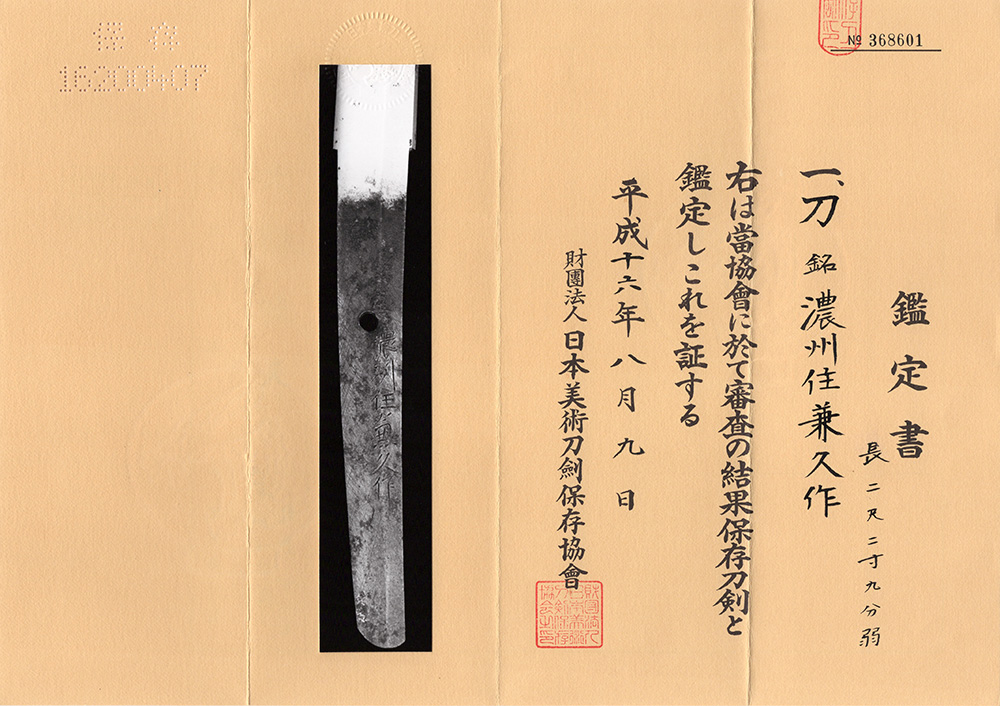 保存
16200407
№ 368601
鑑定書
長二尺二寸九分弱
一、刀 銘 濃州住兼久作
右は當協會に於て審査の結果保存刀剣と
鑑定しこれを証する
平成十六年八月九日
財團法人日本美術刀劍保存協會
濃州住兼久作